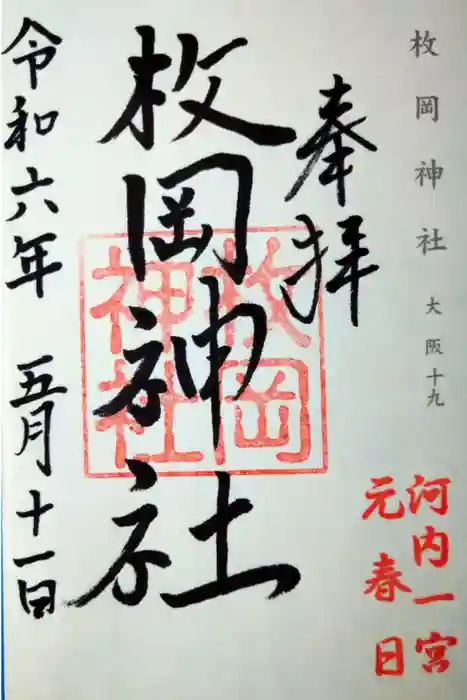 枚岡神社
大阪十九
河内一宮
元春日
奉拝
枚岡神社
枚岡
神社
令和六年
五月十一日